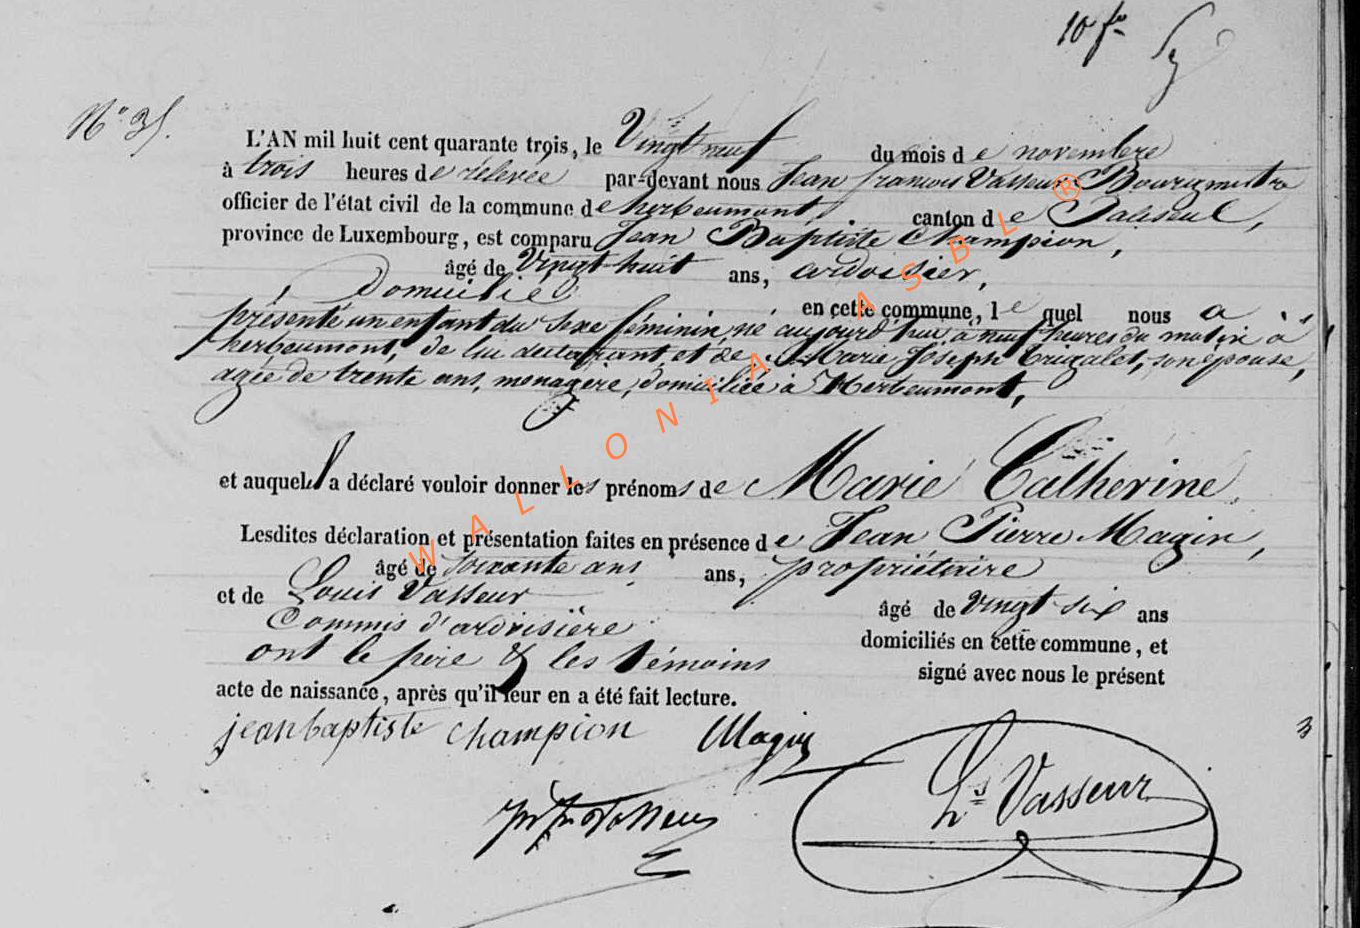 10 f
N° 35.
L'AN mil huit cent quarante trois, le Vingt neuf du mois de novembre
à trois heures de relevée par-devant nous Jean françois Vasseur Bourgmestre
officier de l'état civil de la commune de herbeumont, canton de Paliseul,
province de Luxembourg, est comparu Jean Baptiste Champion,
âgé de Vingt-huit ans, ardoisier,
Domicilié en cette commune, le quel nous a
présenté un enfant du Sexe féminin, né aujourd'hui, à neuf heures du matin à
herbeumont, de lui déclarant et de Marie Joseph son épouse,
agée de trente ans, menagère, domiciliée à Herbeumont,
et auquel a déclaré vouloir donner les prénoms de Marie Catherine.
Lesdites déclaration et présentation faites en présence de Jean Pierre Magin,
âgé de soixante ans ans, propriétaire
et de Louis Vasseur âgé de vingt-six ans
Commis d'ardoisière domiciliés en cette commune, et
ont le père & les témoins signé avec nous le présent
acte de naissance, après qu'il leur en a été fait lecture.
jean baptiste champion Magin
Ls Vasseur
3
WALLONIA ASBL ®